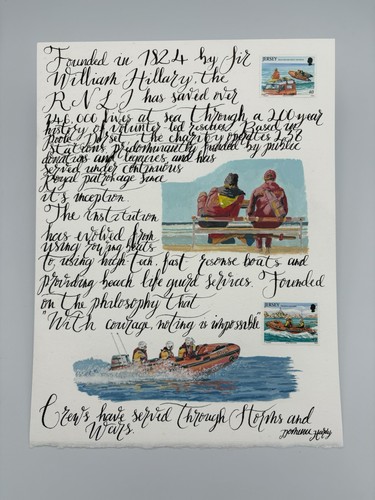 Founded in 1824 by Sir
William Hillary, the
R N L I has saved over
146,000 lives at sea through a 200 year
history of volunteer led rescues. Based in
Poole, Dorset, the charity operates 238
Stations, predominantly funded by public
donations and legacies, and has
served under continuous
Royal patronage since
it's inception.
The Institution
has evolved from
using rowing boats
to using high tech, fast resonse boats and
providing beach life guard services. Founded
on the philosophy that
"With courage, noting is impossible"
Crews have served through Storms and
Wars.
JERSEY
JERSEY